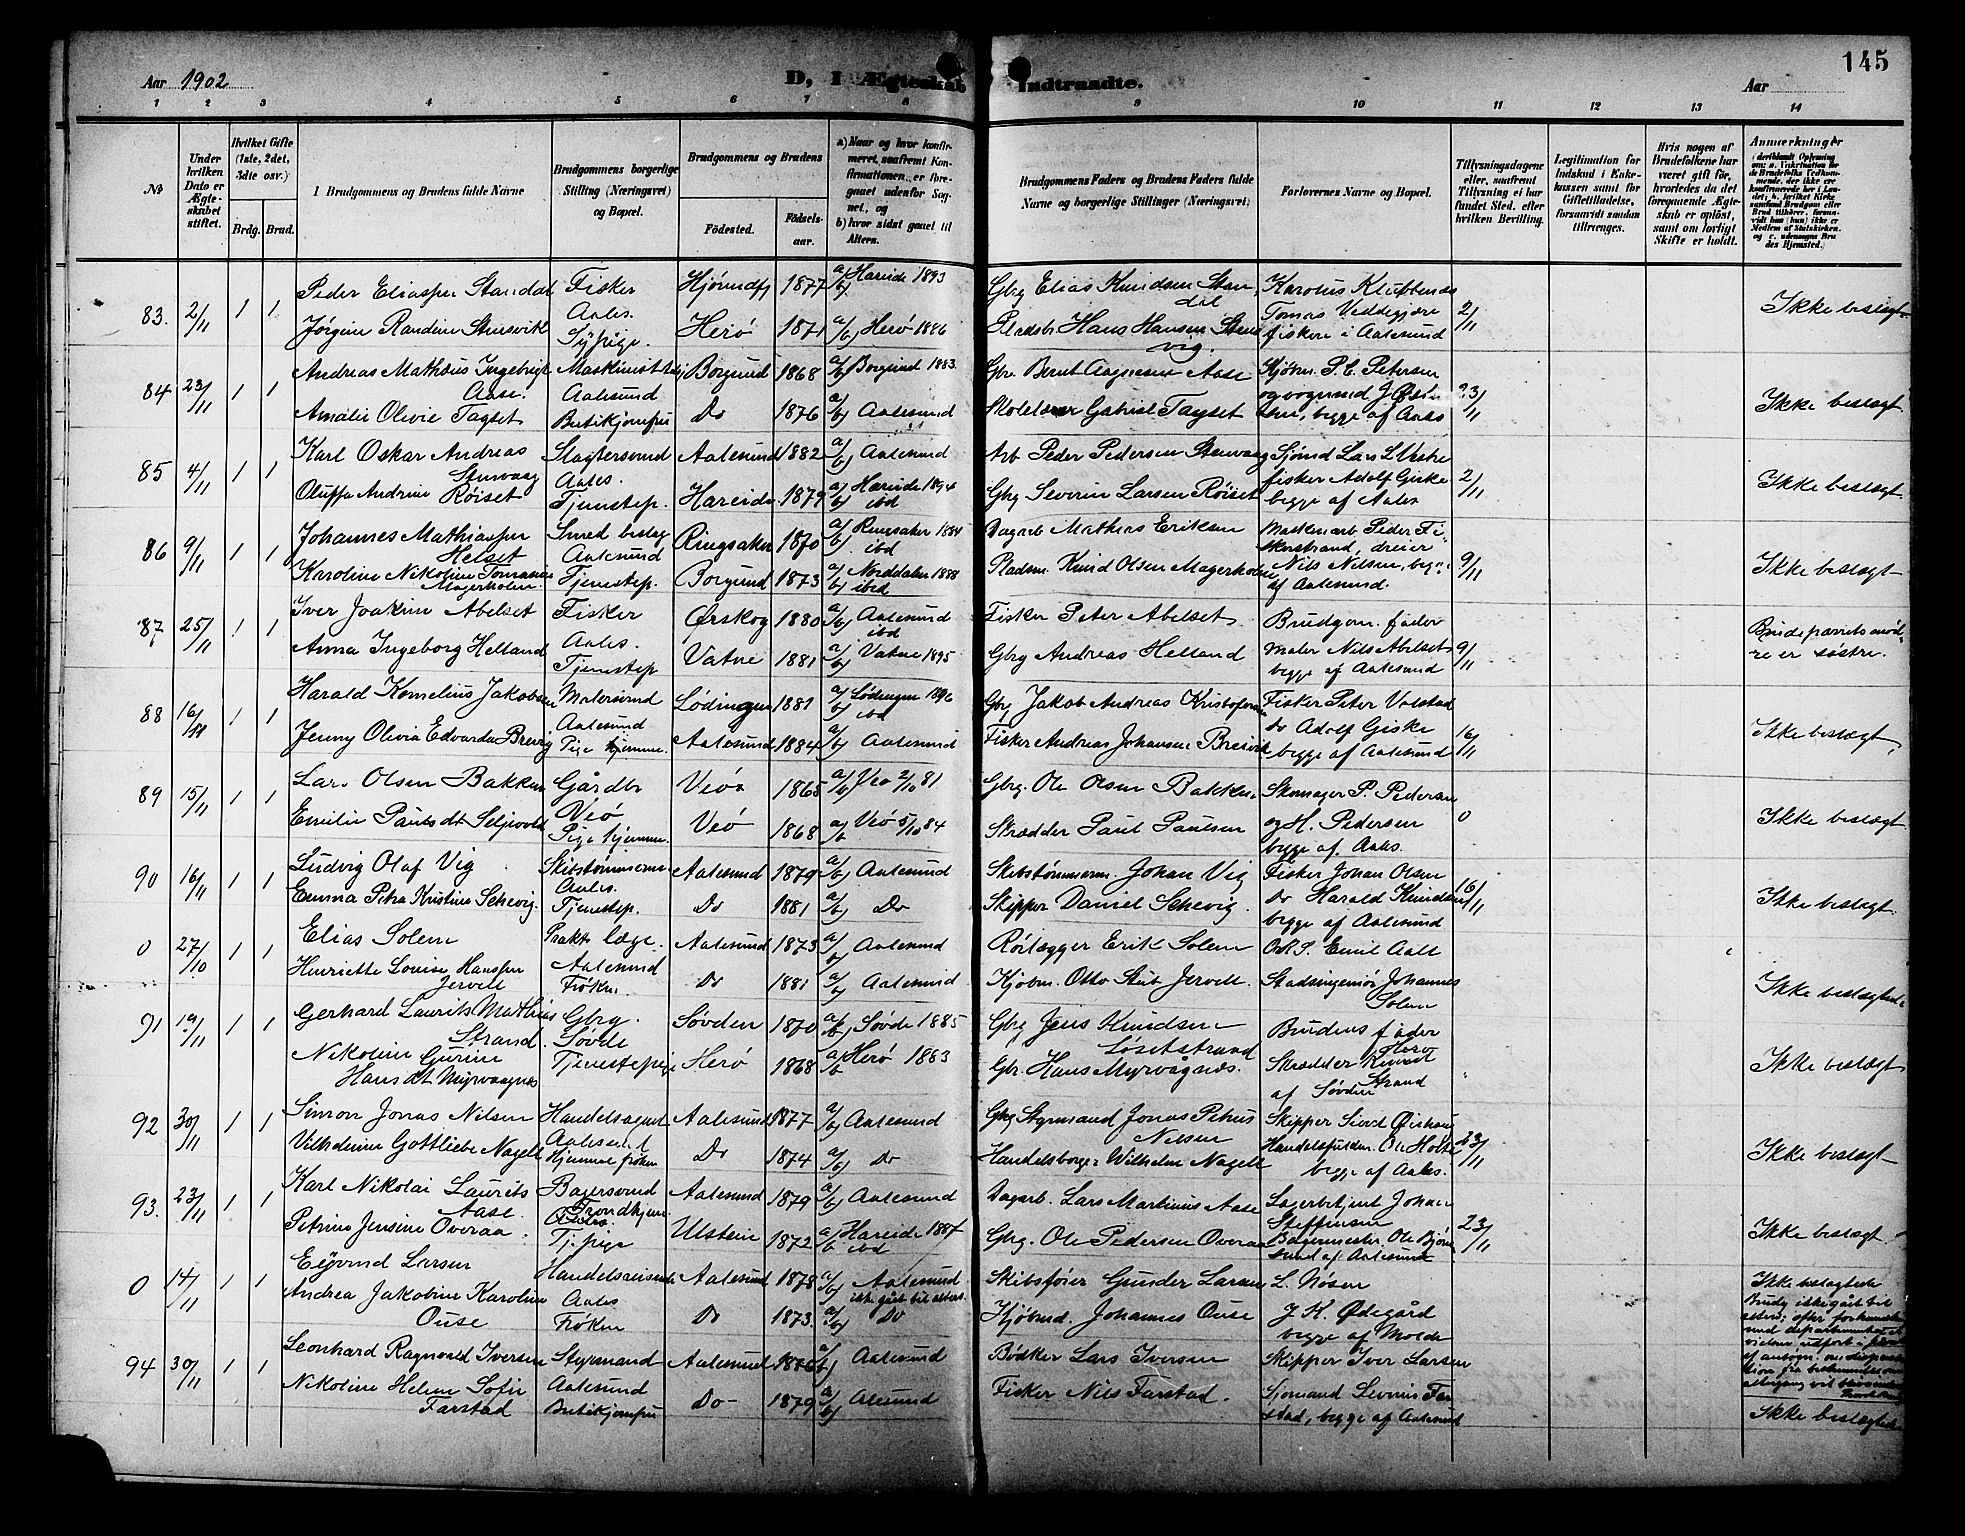 145
Aar 1902
D, I Ægteskab Indtraadte.
Aar
1 2 3 4 5 6 7 8 9 10 11 12 13 14
No
Under hvilken Dato er Ægteskabet stiftet.
Hvilket Gifte (1ste, 2det, 3die osv.)
Brdg. Brud.
Brudgommens og Brudens fulde Navne
Brudgommens borgerlige Stilling (Næringsvei) og Bopæl.
Brudgommens og Brudens
Fødested. Fødselsaar.
a) Naar og hvor konfirmeret, saafremt Konfirmationen er foregaaet udenfor Sognet, og
b) hvor sidst gaaet til Alters.
Brudgommens Faders og Brudens Faders fulde Navne og borgerlige Stillinger (Næringsvei)
Forlovernes Navne og Bopæl.
Tillysningsdagene eller, saafremt Tillysning ei har fundet Sted, efter hvilken Bevilling.
Legitimation for Indskud i Enkekassen samt for Giftetilladelse, forsaavidt saadan tiltrænges.
Hvis nogen af Brudefolkene har været gift før, hvorledes da det foregaaende Ægteskab er opløst, samt om lovligt Skifte er holdt.
Anmærkninger
83. 2/11 1 1 Peder Eliassen Standal Fisker Hjørundfj 1877 a/b) Hareide 1893 Gbrg Elias Knudsen Standal Karolus Klubbenes
Aales. Tomas Veddegjære 2/11 Ikke beslægt.
Jørgine Randine Stensvik Sypige. Herø 1871 a/b) Herø 1886 Pladsbr. Hans Hansen Stensvig. fiskere i Aalesund
84 23/11 1 1 Andreas Mathæus Ingebrigt Aase. Maskinist Borgund 1868 a/b) Borgund 1883 Gbr. Bernt Aagnesen Aase Kjøbm. P. C. Petersen
Aalesund 23/11 Ikke beslægt
Amalie Olivie Tagset Butikjomfru Do 1876 a/b) Aalesund Skolelærer Gabriel Tagset begge af Aales
85 4/11 1 1 Karl Oskar Andreas Stenvaag Slagtersvend Aalesund 1882 a/b) Aalesund Arb Peder Pedersen Stenvaag Sjømd Lars L. Vestre
Aales. fisker Adolf Giske 2/11 Ikke beslægt.
Oluffa Andrine Røiset Tjenestep. Hareide 1879 a/b) Hareide 1894 ibd Gbrg Severin Larsen Røiset begge af Aales
86 9/11 1 1 Johannes Mathiassen Helset Smed beslag Ringsaker 1870 a/b) Ringsaker 1884 ibd Dagarb Mathias Eriksen Maskinarb Peder Fiskerstrand, dreier
Aalesund Nils Nilsen, beg. 9/11 Ikke beslægt
Karoline Nikoline Tomasine Magerholm Tjenestep. Borgund 1873 a/b) Norddalen 1888 ibid Pladsm. Knud Olsen Magerholm af Aalesund.
87 25/11 1 1 Iver Joakim Abelset Fisker Ørskog 1880 a/b) Aalesund ibd Fisker Peter Abelset Brudgom. fader
Aales. maler Nils Abelset 9/11 Brudeparrets mødre er søstre.
Anna Ingeborg Helland Tjenestep Vatne 1881 a/b) Vatne 1895 Gbrg Andreas Helland begge af Aalesund
88 16/11 1 1 Harald Kornelius Jakobsen Malersvend Lødingen 1881 a/b) Lødingen 1896 ibd Gbrg Jakob Andreas Kristofersen Fisker Peter Valstad
Aalesund do Adolf Giske 16/11 Ikke beslægt.
Jenny Olivia Edvarda Brevig Pige hjemme. Aalesund 1884 a/b) Aalesund Fisker Andreas Johansen Breivik begge af Aalesund
89 15/11 1 1 Lars Olsen Bakken Gårdbr Veø 1865 a/b) Veø 2/10 81 Gbrg. Ole Olsen Bakken. Skomager P. Pedersen
Veø og H. Pedersen 0 Ikke beslægt.
Emilie Paulsdt Seljevold Pige hjemme. Veø 1868 a/b Veø 5/10 84 Skrædder Paul Paulsen begge af Aales.
90 16/11 1 1 Ludvig Olaf Vig Skibstømmerm. Aalesund 1879 a/b) Aalesund Skibstømmerm. Johan Vig Fisker Johan Olsen
Aales. Do Harald Knudsen 16/11 Ikke beslægt.
Emma Petra Kristine Schevig. Tjenestep. Do 1881 a/b) Do Skipper Daniel Schevig. begge af Aalesund
0 27/10 1 1 Elias Solem Prakt. læge. Aalesund 1873 a/b) Aalesund Rørlægger Erik Solem O.R.S. Emil Aall
Aalesund Ikke beslægtede
Henriette Louise Hanssen Jervell Frøken. Do 1881 a/b) Aalesund Kjøbm. Otto Stub Jervell Stadsingeniør Johannes Solem
91 19/11 1 1 Gerhard Laurits Mathias Strand. Gbrg. Søvden 1870 a/b) Søvde 1885 Gbrg Jens Knudsen Løsetstrand Brudens fader Herø
Søvde Ikke beslægt
Nikoline Gurine Hansdt Myrvaagnes Tjenestepige Herø 1868 a/b Herø 1883 Gbr. Hans Myrvågnes. Skrædder Knudt Strand af Søvden
92 30/11 1 1 Simon Jonas Nilsen Handelsagent Aalesund 1877 a/b) Aalesund Gbrg Styrmand Jonas Petrus Nilsen Skipper Sivert
Aalesund Handelsfuldm. Ole Molte 23/11 Ikke beslægt
Vilhelmine Gottliebe Nagell Hjemme frøken Do 1874 a/b) Do Handelsborger Wilhelm Nagell begge af Aales.
93. 23/11 1 1 Karl Nikolai Laurits Aase. Bagersvend Trondhjem Aalesund 1879 a/b) Aalesund Dagarb. Lars Martinus Aase Lagerbetjent Johan Steffensen
Aales. 23/11 Ikke beslægt
Petrine Jensine Overaa. Tj. pige Ulstein 1872 a/b Hareide 1887 ibd Gbrg. Ole Pedersen Overaa Bagermester Ole Bjønsund af Aalesund
0 14/11 1 1 Eyvind Larsen Handelsreisende Aalesund 1878 a/b) Aalesund. ikke gåt til alters. Skibsfører Gunder Larsen L. Nøsen
Aales Ikke beslægtede
Andrea Jakobine Karoline Ouse Frøken Do 1873. a/b) Do Kjøbmd. Johannes Ouse J. H. Ødegård begge af Molde
94 30/11 1 1 Leonhard Ragnvald Iversen Styrmand Aalesund 1876 a/b) Aalesund Bødker Lars Iversen Skipper Iver Larsen
Aalesund
Nikoline Helene Sofie Farstad Butikjomfru Do- 1879 a/b) Alesund Fisker Nils Farstad. Sjømand Severin Farstad, begge af Aalesund Ikke beslægtede